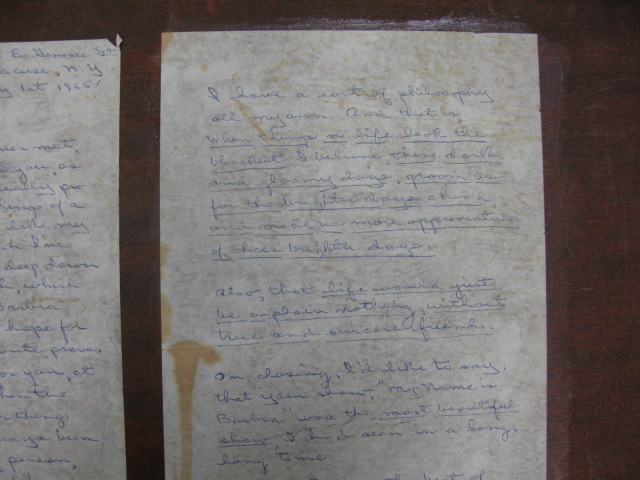 E. Genesee St
Syracuse, N.Y
1st 1965
met,
you, as
pro-
lings of a
like my
deep down
which
Barbra
hope for
proves
for you, at
when the
things
always been
person,
I have a sort of philosophy
all my own. And that is
When things or life look the
blackest I believe, these dark
and gloomy days, groom us
for the brighter days ahead,
and make us more appreciative
of those brighter days.
Also, that life would just
be a plain nothing, without
true and sincere friends.
On closing, I'd like to say,
that your show, "My Name is
Barbra" was the most beautiful
show, I had seen in a long,
long time.
the best of